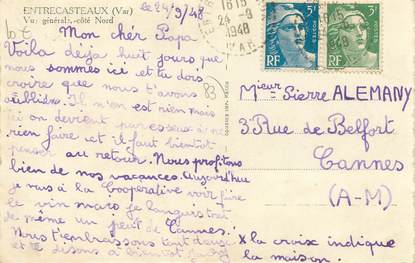 ENTRECASTEAUX (Var)
Vu générale, côté Nord
le 24/9/48
Mon chér Papa
Voila déja huit jours que
nous sommes ici et tu dois
croire que nous t'avons
oublié. Il n'en est rien mais
ici on devient paresseux à ne
rien faire et il faut bientot
penser au retour. Nous profitons
bien de nos vacances. Aujourd'hui
je vais à la Coopérative voir fire
le vin mais je languis tout
de même un peut de Cannes.
Nous t'embrassons tout
et te disons à bientot
83
16 15
24 - 9
1948
VAR
5F
POSTES
RF
3F
POSTES
RF
Mieur Pierre ALEMANY
3 Rue de Belfort
Cannes
(A-M)
X la croix indique
la maison.